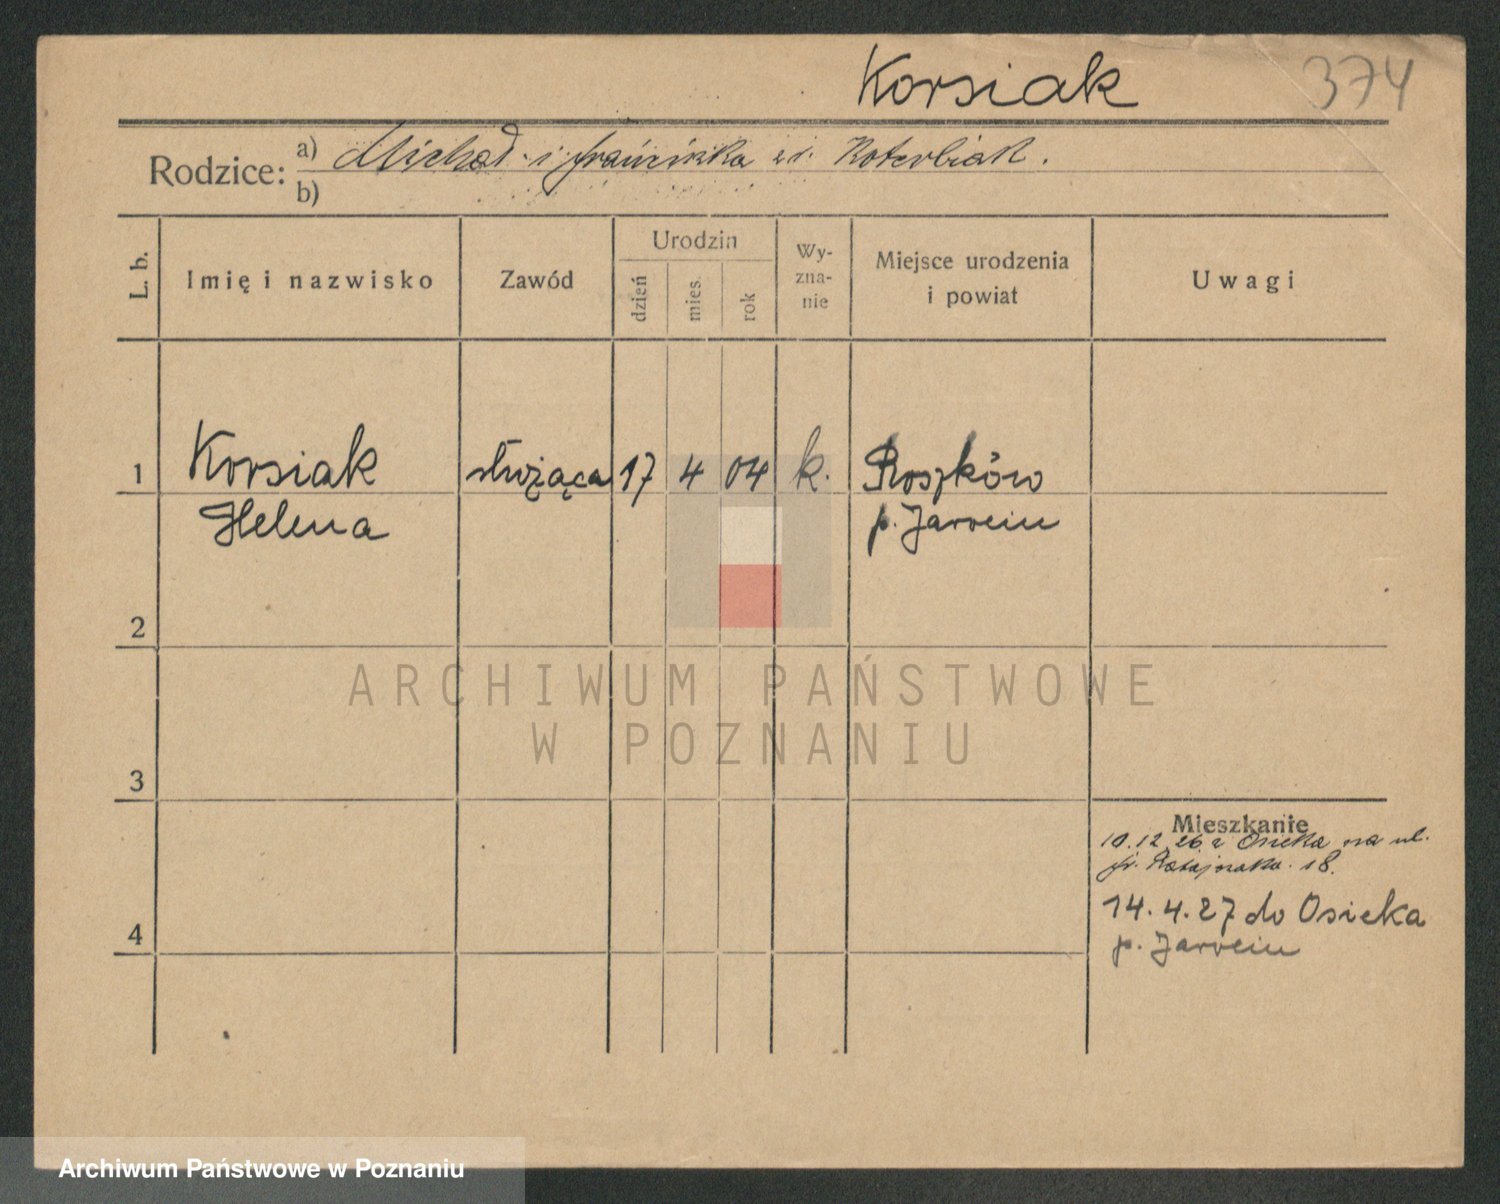 Korsiak 374
Rodzice: a) Michał i Franciszka z d. Koterbiak.
b)
L. b. Imię i nazwisko Zawód Urodzin dzień mies. rok Wy-zna-nie Miejsce urodzenia i powiat Uwagi
1 Korsiak służąca 17 4 04 k. Roszków
Helena p. Jarocin
2
3
4
Mieszkanie
10.12.26 z Osieka na ul.
fr. Ratajczaka 18.
14.4.27 do Osieka
p. Jarocin
ARCHIWUM PAŃSTWOWE
W POZNANIU
Archiwum Państwowe w Poznaniu